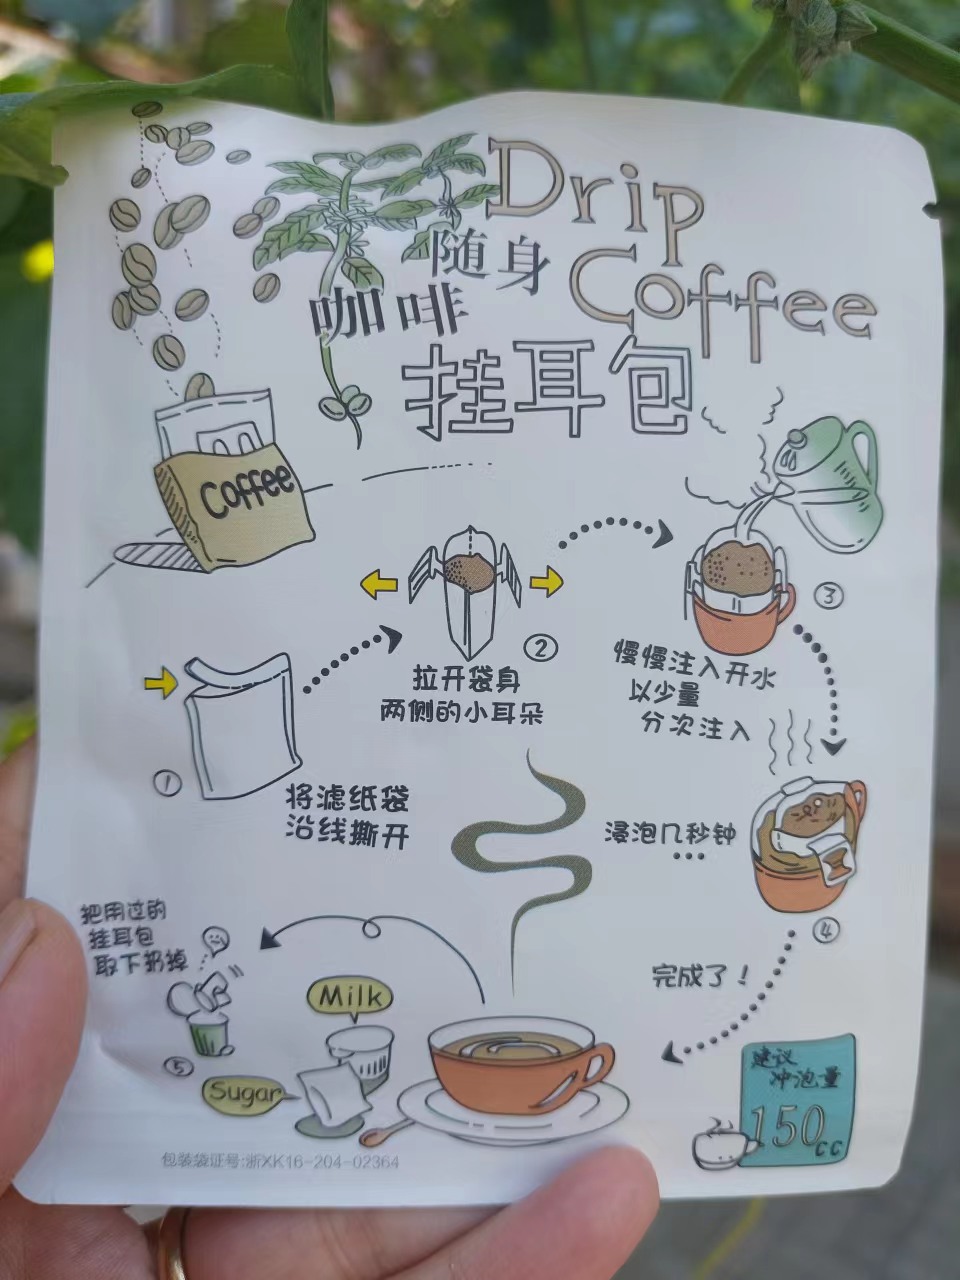 Drip
随身
Coffee
咖啡
挂耳包
Coffee
①
将滤纸袋
沿线撕开
②
拉开袋身
两侧的小耳朵
③
慢慢注入开水
以少量
分次注入
浸泡几秒钟
...
④
完成了！
把用过的
挂耳包
取下扔掉
⑤
Milk
Sugar
建议
冲泡量
150cc
包装袋证号:浙XK16-204-02364